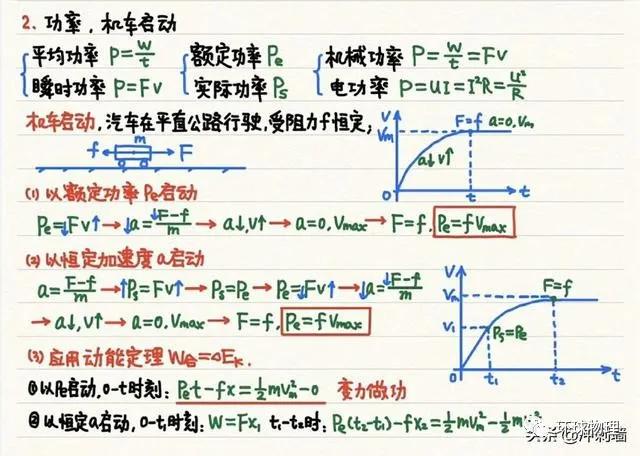 2. 功率，机车启动
平均功率 P=W/t 额定功率 Pe 机械功率 P=W/t=Fv
瞬时功率 P=Fv 实际功率 Ps 电功率 P=UI=I²R=U²/R
机车启动，汽车在平直公路行驶，受阻力f恒定；
V Vm F=f a=0.Vm a↓v↑ 0 t t
f m F
(1) 以额定功率Pe启动
Pe=↓Fv↑→↓a=↓F-f/m→a↓,v↑→a=0.Vmax→F=f. Pe=fVmax
(2) 以恒定加速度a启动
a=F-f/m→↑Ps=Fv↑→Ps=Pe→Pe=↓Fv↑→↓a=↓F-f/m
→a↓,v↑→a=0.Vmax→F=f. Pe=fVmax
V Vm F=f V1 Ps=Pe 0 t1 t2 t
(3) 应用动能定理 W合=△Ek.
①以Pe启动，0-t时刻：Pet-fx=½mVm²-0 变力做功
②以恒定a启动，0-t1时刻：W=Fx1 t1-t2时：Pe(t2-t1)-fx2=½mVm²-½m
环球物理
头条@冲刺墙